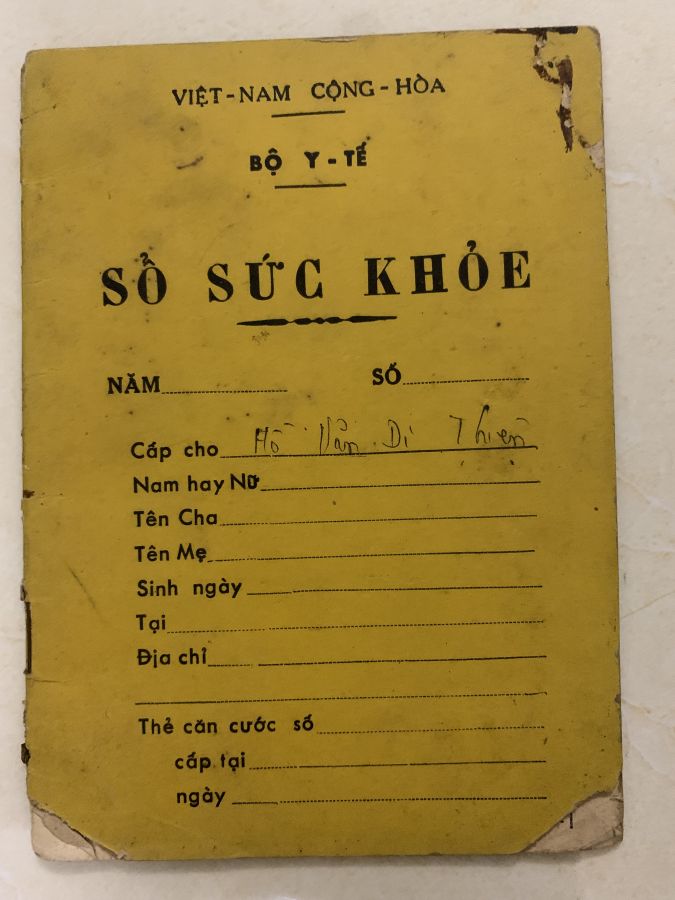 VIỆT-NAM CỘNG-HÒA
BỘ Y-TẾ
SỔ SỨC KHỎE
NĂM SỐ
Cấp cho Hồ Văn Di Thiên
Nam hay Nữ
Tên Cha
Tên Mẹ
Sinh ngày
Tại
Địa chỉ
Thẻ căn cước số
cấp tại
ngày